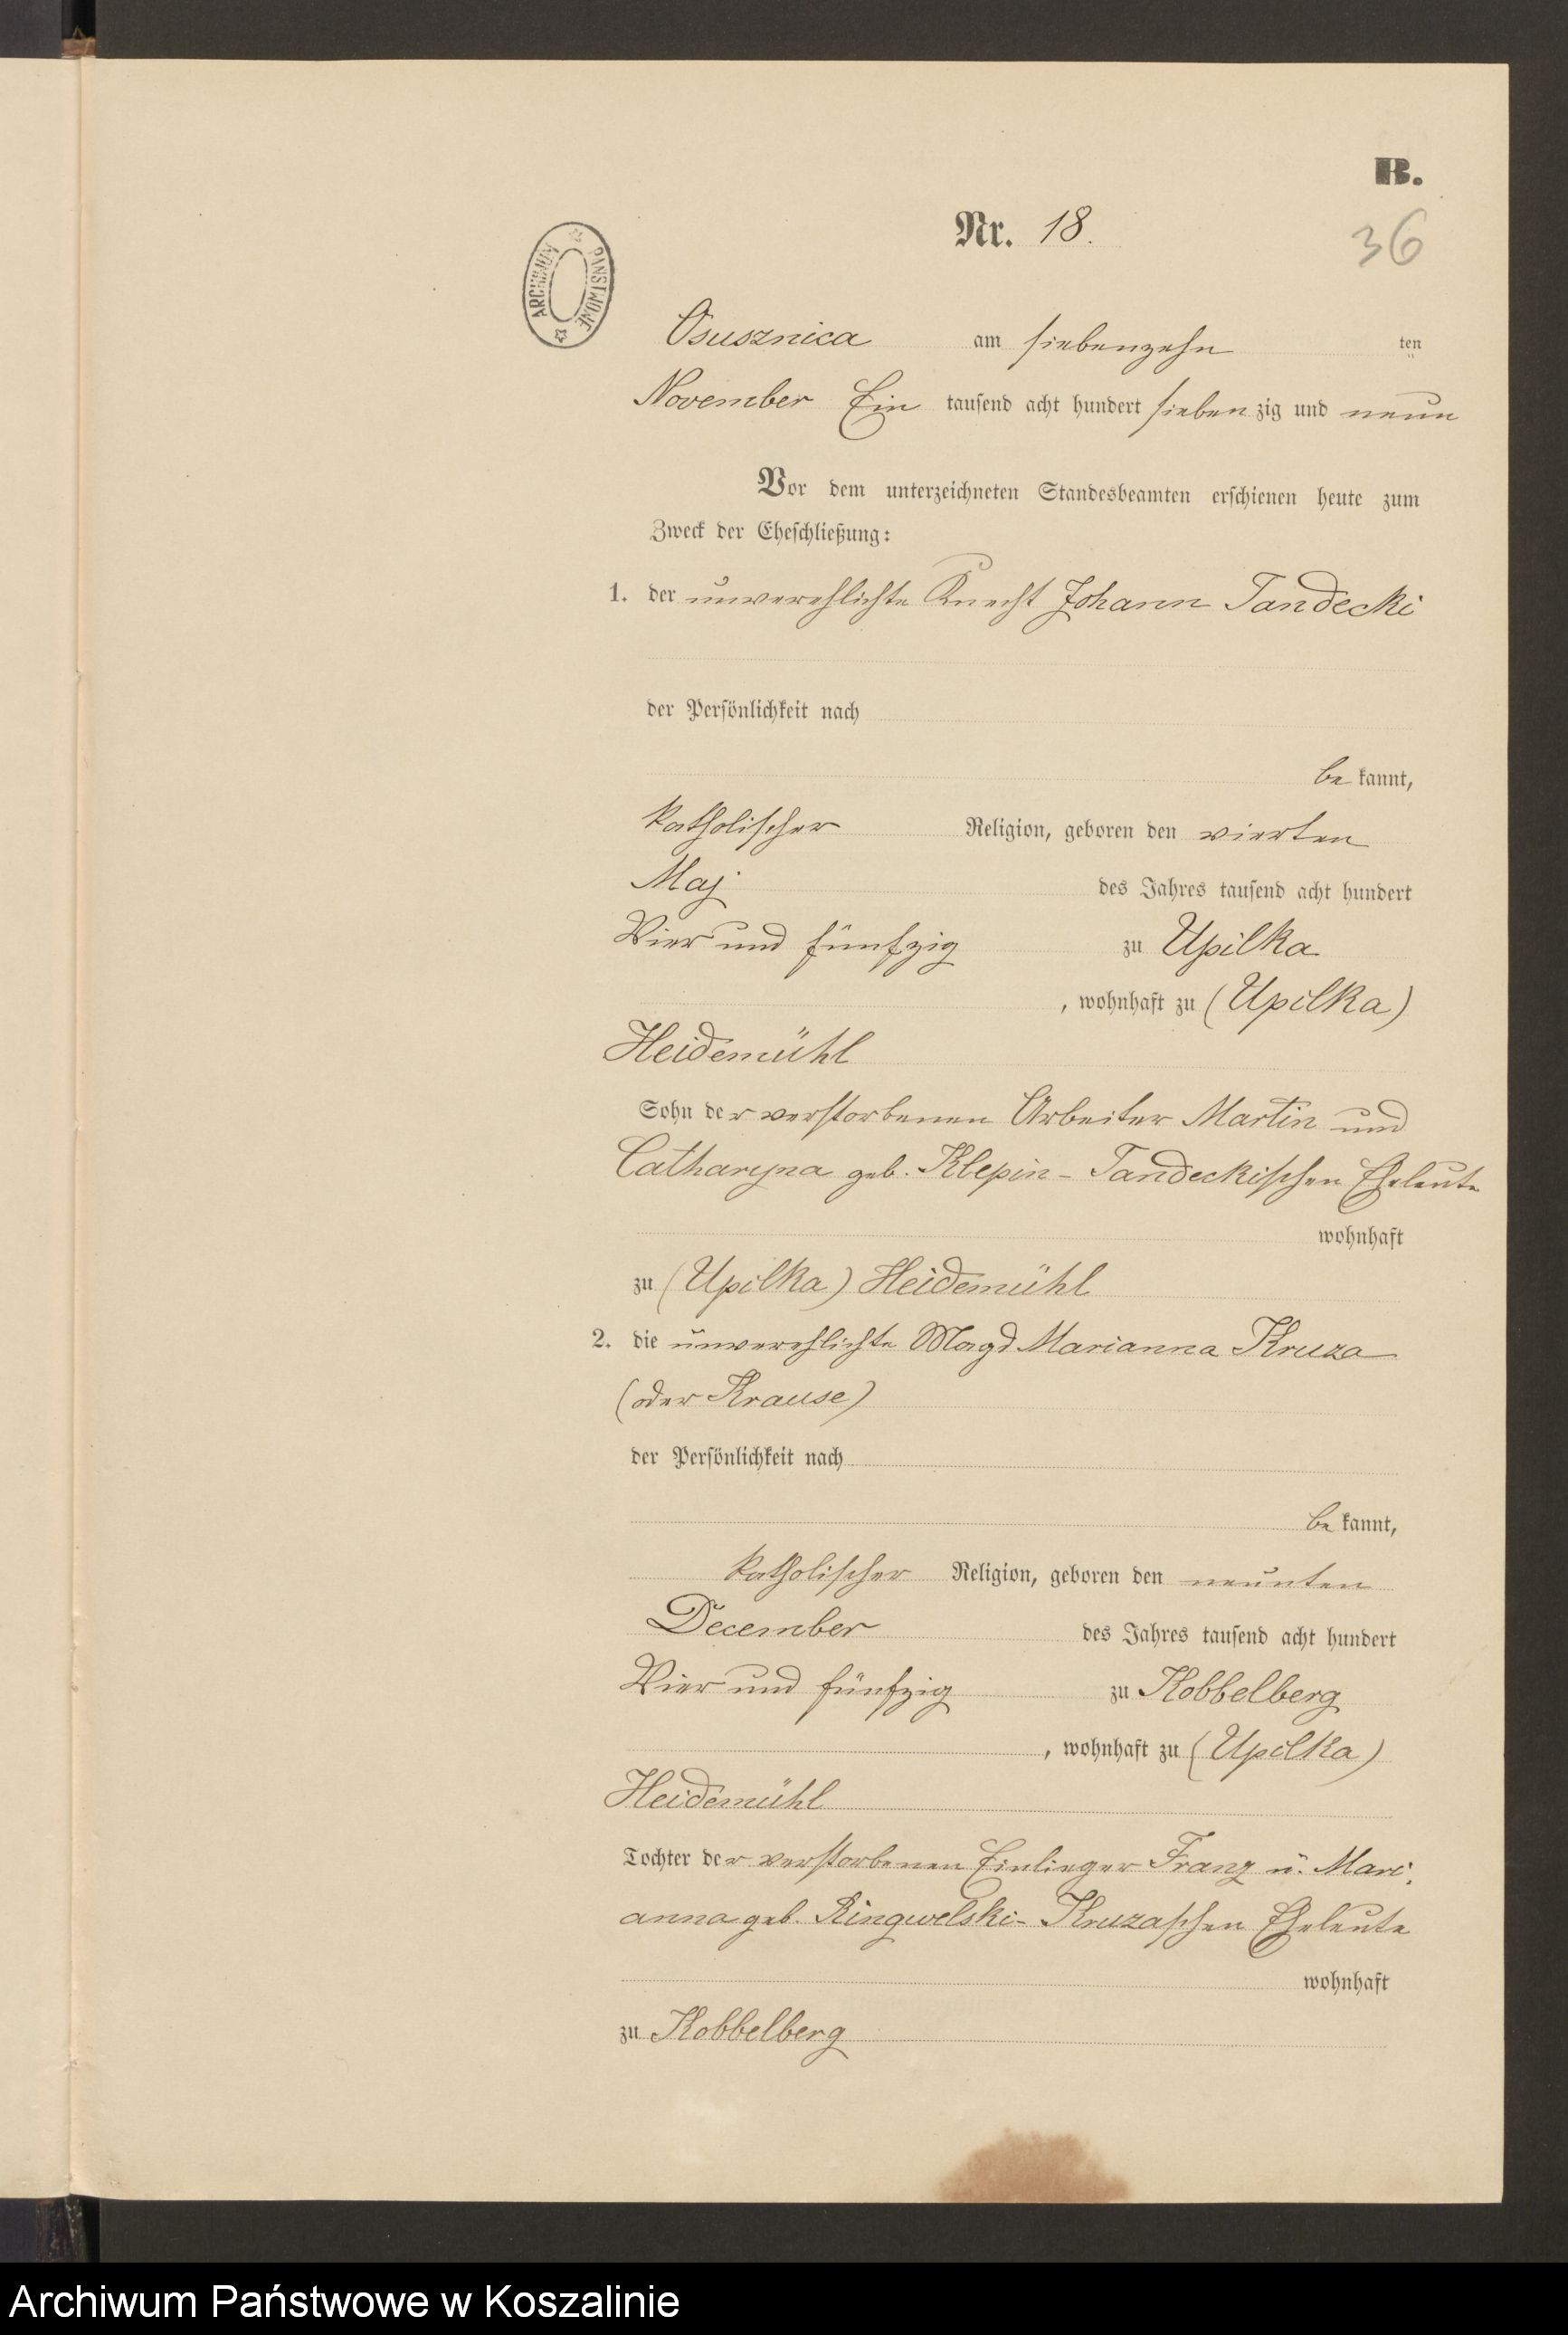 B.
Nr. 18.
36
ARCHIWUM PAŃSTWOWE
Osusznica am siebenzehn ten
November Ein tausend acht hundert sieben zig und neun
Vor dem unterzeichneten Standesbeamten erschienen heute zum
Zweck der Eheschließung:
1. der unverehlichte Knecht Johann Tandecki
der Persönlichkeit nach
be kannt,
katholischer Religion, geboren den vierten
Maj des Jahres tausend acht hundert
Vier und fünfzig zu Upilka
, wohnhaft zu (Upilka)
Heidemühl
Sohn der verstorbenen Arbeiter Martin und
Catharyna geb. Klepin- Tandeckischen Eheleute
wohnhaft
zu (Upilka) Heidemühl
2. die unverehlichte Magd Marianna Kruza
(oder Krause)
der Persönlichkeit nach
be kannt,
katholischer Religion, geboren den neunten
December des Jahres tausend acht hundert
Vier und fünfzig zu Kobbelberg
, wohnhaft zu (Upilka)
Heidemühl
Tochter der verstorbenen Einlieger Franz u. Mari,
anna geb. Ringwelski- Kruzaschen Eheleute
wohnhaft
zu Kobbelberg
Archiwum Państwowe w Koszalinie